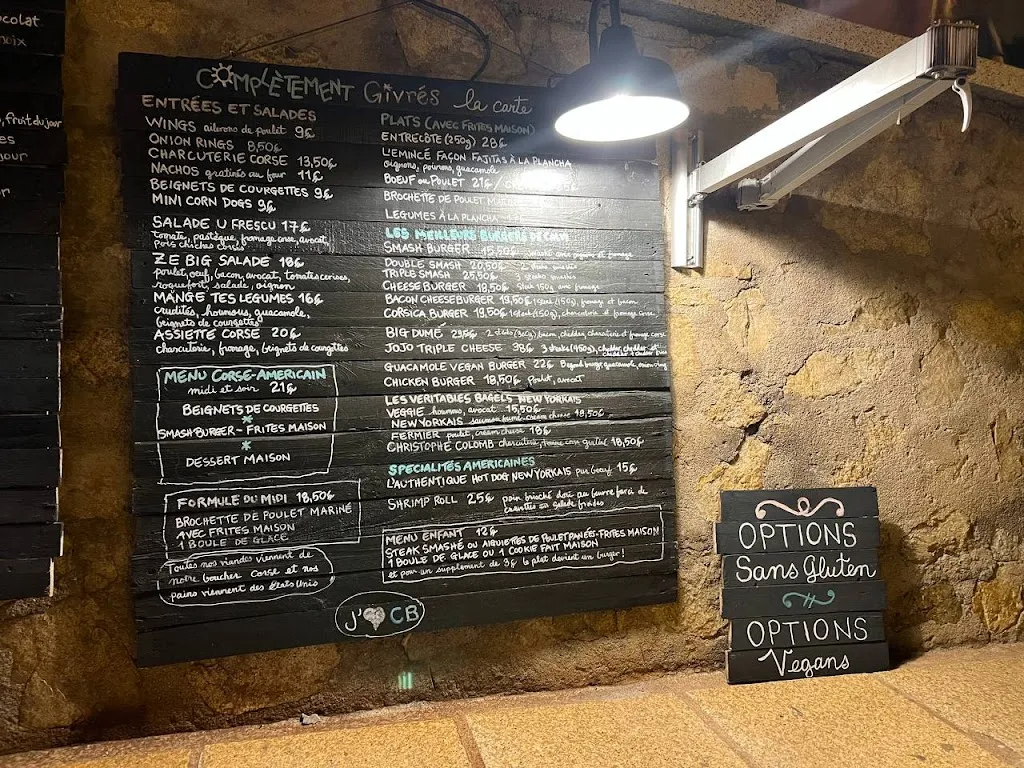 colat
noix
, fruit du jour
jour
COMPLÈTEMENT Givrés la carte
ENTRÉES ET SALADES
WINGS ailerons de poulet 9€
ONION RINGS 8,50€
CHARCUTERIE CORSE 13,50€
NACHOS gratinés au four 11€
BEIGNETS DE COURGETTES 9€
MINI CORN DOGS 9€
SALADE U FRESCU 17€
tomate, pastèque, fromage corse, avocat,
pois chiches
ZE BIG SALADE 18€
poulet, oeuf, bacon, avocat, tomates cerises,
roquefort, salade, oignon
MANGE TES LEGUMES 16€
crudités, houmous, guacamole,
beignets de courgettes
ASSIETTE CORSE 20€
charcuterie, fromage, beignets de courgettes
MENU CORSE-AMERICAIN
midi et soir 21€
BEIGNETS DE COURGETTES
*
SMASH BURGER - FRITES MAISON
*
DESSERT MAISON
FORMULE DU MIDI 18,50€
BROCHETTE DE POULET MARINÉ
AVEC FRITES MAISON
1 BOULE DE GLACE
Toutes nos viandes viennent de
notre boucher Corse et nos
pains viennent des Etats Unis
PLATS (AVEC FRITES MAISON)
ENTRECÔTE (250g) 28€
L'EMINCÉ FAÇON FAJITAS À LA PLANCHA
oignons, poivrons, guacamole
BOEUF ou POULET 21€ /
BROCHETTE DE POULET
LEGUMES À LA PLANCHA
LES MEILLEURS BURGERS DE CORSE
SMASH BURGER 15,50€
DOUBLE SMASH 20,50€
TRIPLE SMASH 25,50€
CHEESEBURGER 18,50€ Steak 150g avec fromage
BACON CHEESEBURGER 19,50€ 1 steak (150g), fromage et bacon
CORSICA BURGER 19,50€ 1 steak (150g), charcuterie et fromage corse
BIG DUMÉ 29,5€ 2 steaks (300g) bacon, cheddar, charcuterie et fromage corse
JOJO TRIPLE CHEESE 38€ 3 steaks (450g), cheddar, cheddar et
cheddar
GUACAMOLE VEGAN BURGER 22€ Beyond burger, guacamole, onion rings
CHICKEN BURGER 18,50€ Poulet, avocat
LES VERITABLES BAGELS NEW YORKAIS
VEGGIE houmous, avocat 15,50€
NEW YORKAIS saumon fumé, cream cheese 18,50€
FERMIER poulet, cream cheese 18€
CHRISTOPHE COLOMB charcuterie, tomme corse grillée 18,50€
SPECIALITÉS AMERICAINES
L'AUTHENTIQUE HOT DOG NEW YORKAIS pur boeuf 15€
SHRIMP ROLL 25€ pain brioché doré au beurre farci de
crevettes ou salade frites
MENU ENFANT 12€
STEAK SMASHÉ OU AIGUILLETTES DE POULET PANÉES - FRITES MAISON
1 BOULE DE GLACE OU 1 COOKIE FAIT MAISON
et pour un supplément de 3€ le plat devient un burger !
J' CB
OPTIONS
Sans Gluten
OPTIONS
Vegans